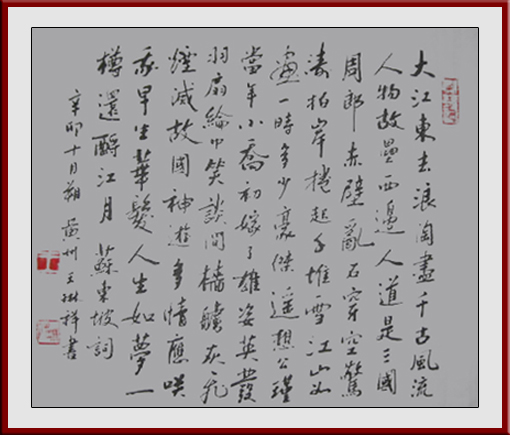 大江東去浪淘盡千古風流
人物故壘西邊人道是三國
周郎赤壁亂石穿空驚
濤拍岸捲起千堆雪江山如
畫一時多少豪傑遙想公瑾
當年小喬初嫁了雄姿英發
羽扇綸巾笑談間檣艣灰飛
煙滅故國神遊多情應咲
我早生華髮人生如夢一
樽還酹江月 蘇東坡詞
辛卯十月朔 黃州王琳祥書